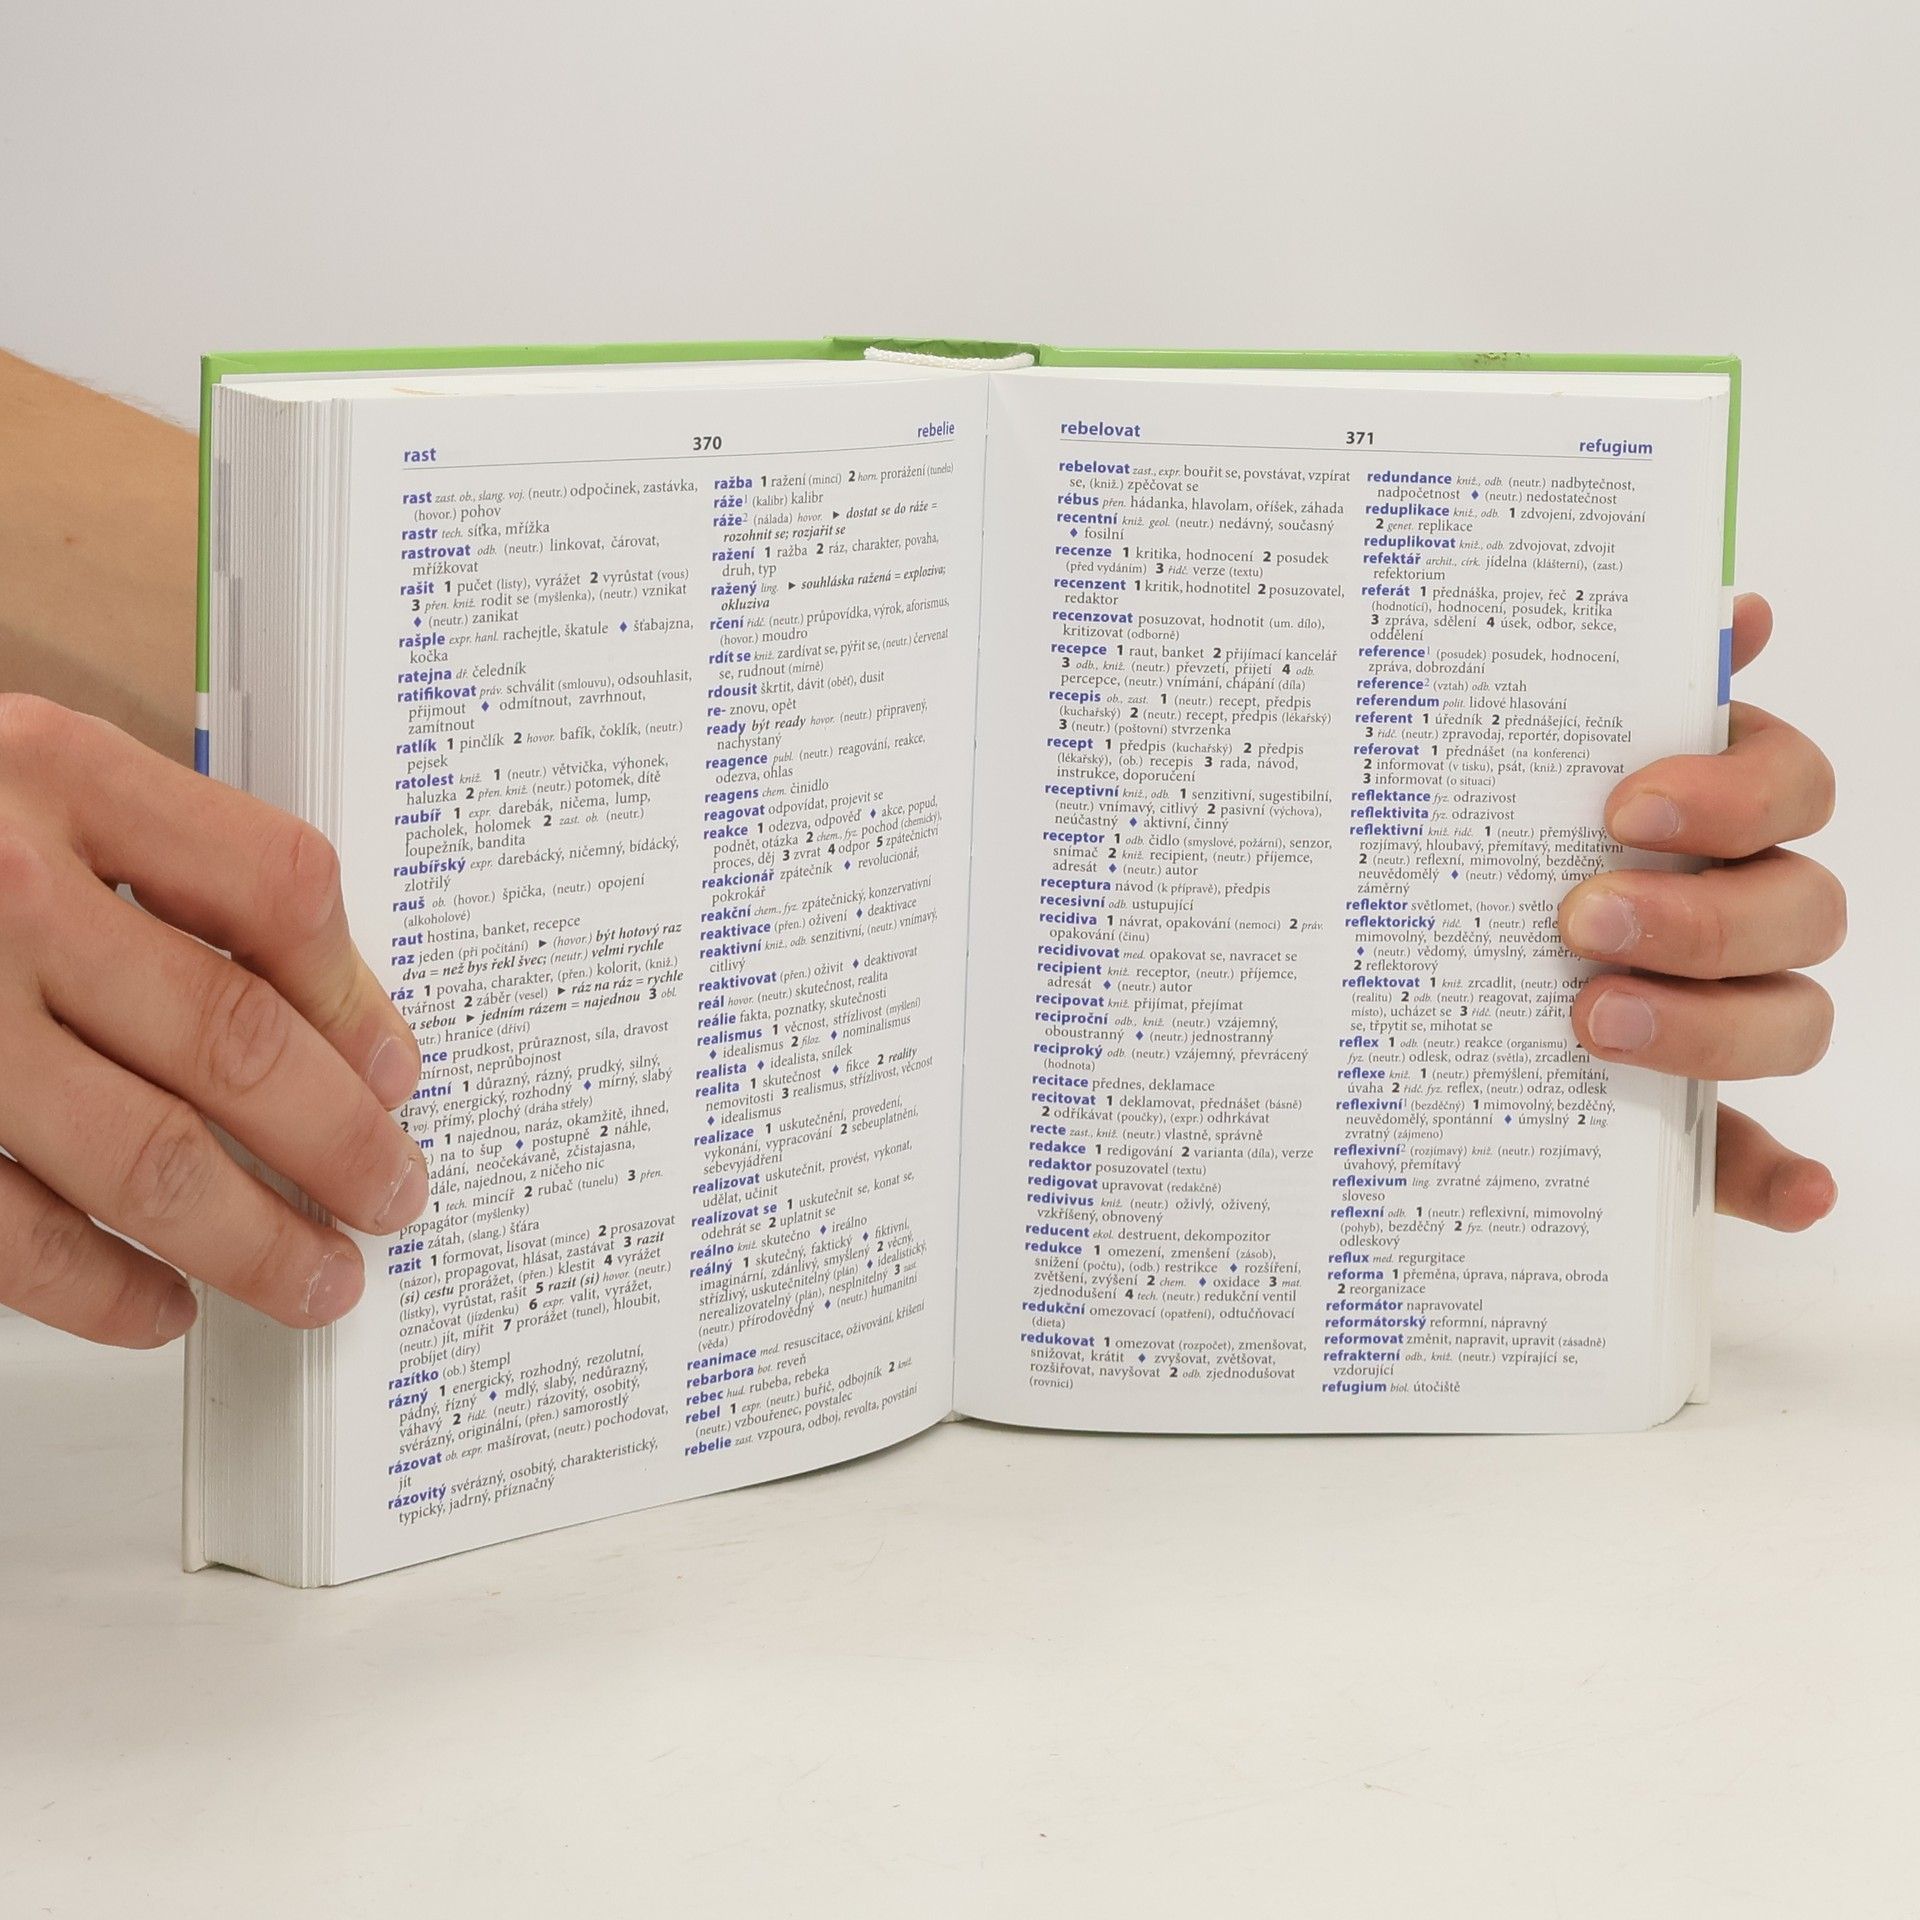 rast
370
rebelie
rast zast. ob., slang. voj. (neutr.) odpočinek, zastávka,
(hovor.) pohov
rastr tech. síťka, mřížka
rastrovat odb. (neutr.) linkovat, čárovat,
mřížkovat
rašit 1 pučet (listy), vyrážet 2 vyrůstat (vous)
3 přen. kniž. rodit se (myšlenka), (neutr.) vznikat
♦ (neutr.) zanikat
rašple expr. hanl. rachejtle, škatule ♦ šťabajzna,
kočka
ratejna dř. čeledník
ratifikovat práv. schválit (smlouvu), odsouhlasit,
přijmout ♦ odmítnout, zavrhnout,
zamítnout
ratlík 1 pinčlík 2 hovor. bafík, čoklík, (neutr.)
pejsek
ratolest kniž. 1 (neutr.) větvička, výhonek,
haluzka 2 přen. kniž. (neutr.) potomek, dítě
raubíř 1 expr. darebák, ničema, lump,
pacholek, holomek 2 zast. ob. (neutr.)
loupežník, bandita
raubířský expr. darebácký, ničemný, bídácký,
zlotřilý
rauš ob. (hovor.) špička, (neutr.) opojení
(alkoholové)
raut hostina, banket, recepce
raz jeden (při počítání) ► (hovor.) být hotový raz
dva = než bys řekl švec; (neutr.) velmi rychle
ráz 1 povaha, charakter, (přen.) kolorit, (kniž.)
tvářnost 2 záběr (vesel) ► ráz na ráz = rychle
a sebou ► jedním rázem = najednou 3 obl.
utr.) hranice (dříví)
nce prudkost, průraznost, síla, dravost
mírnost, neprůbojnost
antní 1 důrazný, rázný, prudký, silný,
dravý, energický, rozhodný ♦ mírný, slabý
2 voj. přímý, plochý (dráha střely)
m 1 najednou, naráz, okamžitě, ihned,
.) na to šup ♦ postupně 2 náhle,
adání, neočekávaně, zčistajasna,
dále, najednou, z ničeho nic
1 tech. mincíř 2 rubač (tunelu) 3 přen.
propagátor (myšlenky)
razie zátah, (slang.) šťára
razit 1 formovat, lisovat (mince) 2 prosazovat
(názor), propagovat, hlásat, zastávat 3 razit
(si) cestu prorážet, (přen.) klestit 4 vyrážet
(lístky), vyrůstat, rašit 5 razit (si) hovor. (neutr.)
označovat (jízdenku) 6 expr. valit, vyrážet,
(neutr.) jít, mířit 7 prorážet (tunel), hloubit,
probíjet (díry)
razítko (ob.) štempl
rázný 1 energický, rozhodný, rezolutní,
pádný, řízný ♦ mdlý, slabý, nedůrazný,
váhavý 2 řidč. (neutr.) rázovitý, osobitý,
svérázný, originální, (přen.) samorostlý
rázovat ob. expr. mašírovat, (neutr.) pochodovat,
jít
rázovitý svérázný, osobitý, charakteristický,
typický, jadrný, příznačný
ražba 1 ražení (mincí) 2 horn. prorážení (tunelu)
ráže¹ (kalibr) kalibr
ráže² (nálada) hovor. ► dostat se do ráže =
rozohnit se; rozjařit se
ražení 1 ražba 2 ráz, charakter, povaha,
druh, typ
ražený ling. ► souhláska ražená = explozíva;
okluzíva
rčení řidč. (neutr.) průpovídka, výrok, aforismus,
(hovor.) moudro
rdít se kniž. zardívat se, pýřit se, (neutr.) červenat
se, rudnout (mírně)
rdousit škrtit, dávit (oběť), dusit
re- znovu, opět
ready být ready hovor. (neutr.) připravený,
nachystaný
reagence publ. (neutr.) reagování, reakce,
odezva, ohlas
reagens chem. činidlo
reagovat odpovídat, projevit se
reakce 1 odezva, odpověď ♦ akce, popud,
podnět, otázka 2 chem., fyz. pochod (chemický),
proces, děj 3 zvrat 4 odpor 5 zpátečnictví
reakcionář zpátečník ♦ revolucionář,
pokrokář
reakční chem., fyz. zpátečnický, konzervativní
reaktivace (přen.) oživení ♦ deaktivace
reaktivní kniž., odb. senzitivní, (neutr.) vnímavý,
citlivý
reaktivovat (přen.) oživit ♦ deaktivovat
reál hovor. (neutr.) skutečnost, realita
reálie fakta, poznatky, skutečnosti
realismus 1 věcnost, střízlivost (myšlení)
♦ idealismus 2 filoz. ♦ nominalismus
realista ♦ idealista, snílek
realita 1 skutečnost ♦ fikce 2 reality
nemovitosti 3 realismus, střízlivost, věcnost
♦ idealismus
realizace 1 uskutečnění, provedení,
vykonání, vypracování 2 sebeuplatnění,
sebevyjádření
realizovat uskutečnit, provést, vykonat,
udělat, učinit
realizovat se 1 uskutečnit se, konat se,
odehrát se 2 uplatnit se
reálno kniž. skutečno ♦ ireálno
reálný 1 skutečný, faktický ♦ fiktivní,
imaginární, zdánlivý, smyšlený 2 věcný,
střízlivý, uskutečnitelný (plán) ♦ idealistický,
nerealizovatelný (plán), nesplnitelný 3 zast.
(neutr.) přírodovědný ♦ (neutr.) humanitní
(věda)
reanimace med. resuscitace, oživování, kříšení
rebarbora bot. reveň
rebec hud. rubeba, rebeka
rebel 1 expr. (neutr.) buřič, odbojník 2 kniž.
(neutr.) vzbouřenec, povstalec
rebelie zast. vzpoura, odboj, revolta, povstání
rebelovat
371
refugium
rebelovat zast., expr. bouřit se, povstávat, vzpírat
se, (kniž.) zpěčovat se
rébus přen. hádanka, hlavolam, oříšek, záhada
recentní kniž. geol. (neutr.) nedávný, současný
♦ fosilní
recenze 1 kritika, hodnocení 2 posudek
(před vydáním) 3 řidč. verze (textu)
recenzent 1 kritik, hodnotitel 2 posuzovatel,
redaktor
recenzovat posuzovat, hodnotit (um. dílo),
kritizovat (odborně)
recepce 1 raut, banket 2 přijímací kancelář
3 odb., kniž. (neutr.) převzetí, přijetí 4 odb.
percepce, (neutr.) vnímání, chápání (díla)
recepis ob., zast. 1 (neutr.) recept, předpis
(kuchařský) 2 (neutr.) recept, předpis (lékařský)
3 (neutr.) (poštovní) stvrzenka
recept 1 předpis (kuchařský) 2 předpis
(lékařský), (ob.) recepis 3 rada, návod,
instrukce, doporučení
receptivní kniž., odb. 1 senzitivní, sugestibilní,
(neutr.) vnímavý, citlivý 2 pasivní (výchova),
neúčastný ♦ aktivní, činný
receptor 1 odb. čidlo (smyslové, požární), senzor,
snímač 2 kniž. recipient, (neutr.) příjemce,
adresát ♦ (neutr.) autor
receptura návod (k přípravě), předpis
recesivní odb. ustupující
recidiva 1 návrat, opakování (nemoci) 2 práv.
opakování (činu)
recidivovat med. opakovat se, navracet se
recipient kniž. receptor, (neutr.) příjemce,
adresát ♦ (neutr.) autor
recipovat kniž. přijímat, přejímat
reciproční odb., kniž. (neutr.) vzájemný,
oboustranný ♦ (neutr.) jednostranný
reciproký odb. (neutr.) vzájemný, převrácený
(hodnota)
recitace přednes, deklamace
recitovat 1 deklamovat, přednášet (básně)
2 odříkávat (poučky), (expr.) odhrkávat
recte zast., kniž. (neutr.) vlastně, správně
redakce 1 redigování 2 varianta (díla), verze
redaktor posuzovatel (textu)
redigovat upravovat (redakčně)
redivivus kniž. (neutr.) oživlý, oživený,
vzkříšený, obnovený
reducent ekol. destruent, dekompozitor
redukce 1 omezení, zmenšení (zásob),
snížení (počtu), (odb.) restrikce ♦ rozšíření,
zvětšení, zvýšení 2 chem. ♦ oxidace 3 mat.
zjednodušení 4 tech. (neutr.) redukční ventil
redukční omezovací (opatření), odtučňovací
(dieta)
redukovat 1 omezovat (rozpočet), zmenšovat,
snižovat, krátit ♦ zvyšovat, zvětšovat,
rozšiřovat, navyšovat 2 odb. zjednodušovat
(rovnici)
redundance kniž., odb. (neutr.) nadbytečnost,
nadpočetnost ♦ (neutr.) nedostatečnost
reduplikace kniž., odb. 1 zdvojení, zdvojování
2 genet. replikace
reduplikovat kniž., odb. zdvojovat, zdvojit
refektář archit., círk. jídelna (klášterní), (zast.)
refektorium
referát 1 přednáška, projev, řeč 2 zpráva
(hodnotící), hodnocení, posudek, kritika
3 zpráva, sdělení 4 úsek, odbor, sekce,
oddělení
reference¹ (posudek) posudek, hodnocení,
zpráva, dobrozdání
reference² (vztah) odb. vztah
referendum polit. lidové hlasování
referent 1 úředník 2 přednášející, řečník
3 řidč. (neutr.) zpravodaj, reportér, dopisovatel
referovat 1 přednášet (na konferenci)
2 informovat (v tisku), psát, (kniž.) zpravovat
3 informovat (o situaci)
reflektance fyz. odrazivost
reflektivita fyz. odrazivost
reflektivní kniž. řidč. 1 (neutr.) přemýšlivý,
rozjímavý, hloubavý, přemítavý, meditativní
2 (neutr.) reflexní, mimovolný, bezděčný,
neuvědomělý ♦ (neutr.) vědomý, úmys
záměrný
reflektor světlomet, (hovor.) světlo
reflektorický řidč. 1 (neutr.) refle
mimovolný, bezděčný, neuvědom
♦ (neutr.) vědomý, úmyslný, záměrn
2 reflektorový
reflektovat 1 kniž. zrcadlit, (neutr.) odr
(realitu) 2 odb. (neutr.) reagovat, zajíma
místo), ucházet se 3 řidč. (neutr.) zářit,
se, třpytit se, mihotat se
reflex 1 odb. (neutr.) reakce (organismu) 2
fyz. (neutr.) odlesk, odraz (světla), zrcadlení
reflexe kniž. 1 (neutr.) přemýšlení, přemítání,
úvaha 2 řidč. fyz. reflex, (neutr.) odraz, odlesk
reflexivní¹ (bezděčný) 1 mimovolný, bezděčný,
neuvědomělý, spontánní ♦ úmyslný 2 ling.
zvratný (zájmeno)
reflexivní² (rozjímavý) kniž. (neutr.) rozjímavý,
úvahový, přemítavý
reflexivum ling. zvratné zájmeno, zvratné
sloveso
reflexní odb. 1 (neutr.) reflexivní, mimovolný
(pohyb), bezděčný 2 fyz. (neutr.) odrazový,
odleskový
reflux med. regurgitace
reforma 1 přeměna, úprava, náprava, obroda
2 reorganizace
reformátor napravovatel
reformátorský reformní, nápravný
reformovat změnit, napravit, upravit (zásadně)
refrakterní odb., kniž. (neutr.) vzpírající se,
vzdorující
refugium biol. útočiště